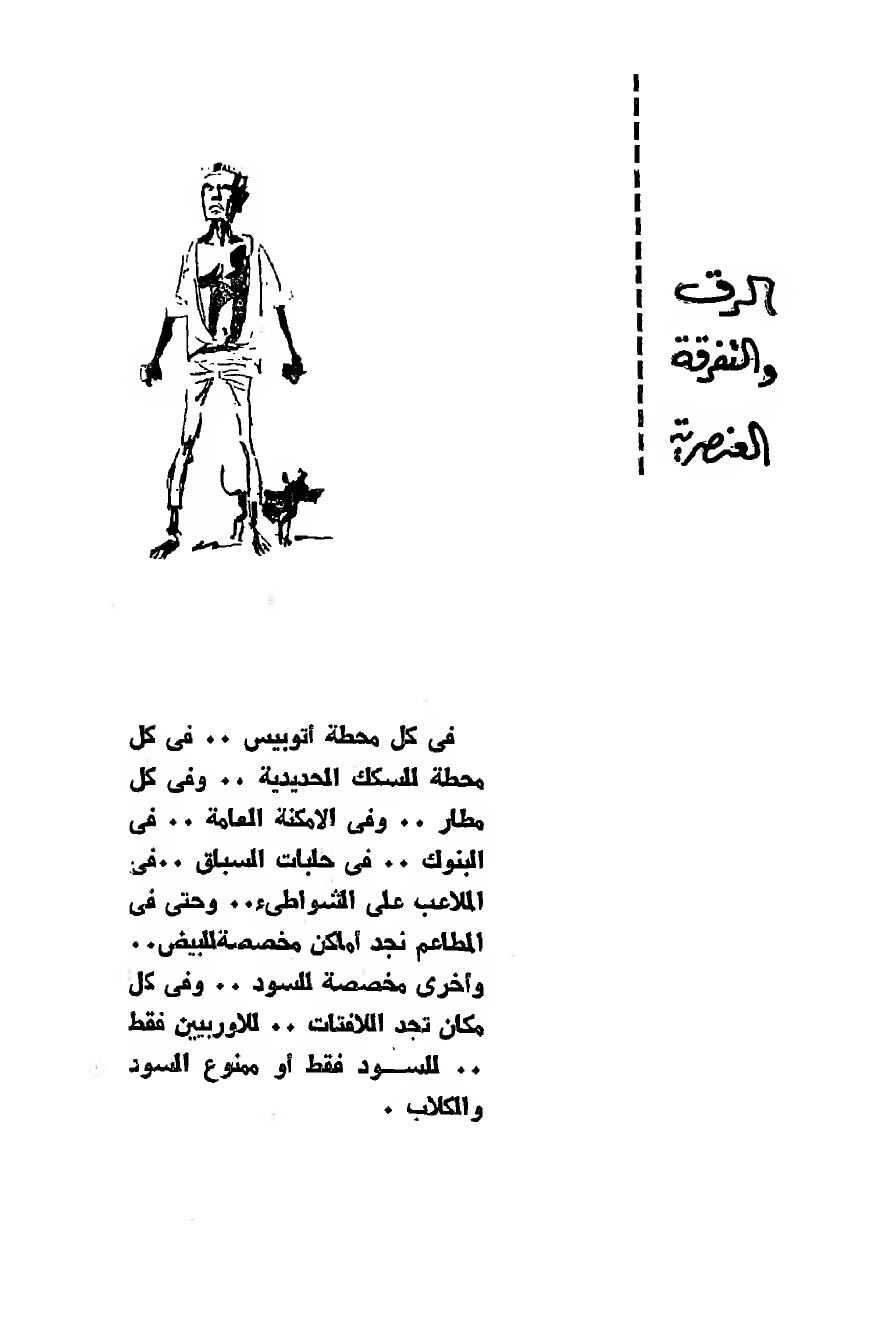 الرق
والتفرقة
العنصرية
فى كل محطة أتوبيس ‥ فى كل
محطة للسكك الحديدية ‥ وفى كل
مطار ‥ وفى الامكنة العامة ‥ فى
البنوك ‥ فى حلبات السباق ‥فى
الملاعب على الشواطىء‥ وحتى فى
المطاعم نجد أماكن مخصصةللبيض‥
وأخرى مخصصة للسود ‥ وفى كل
مكان تجد اللافتات ‥ للاوربيين فقط
‥ للســود فقط أو ممنوع السود
والكلاب .